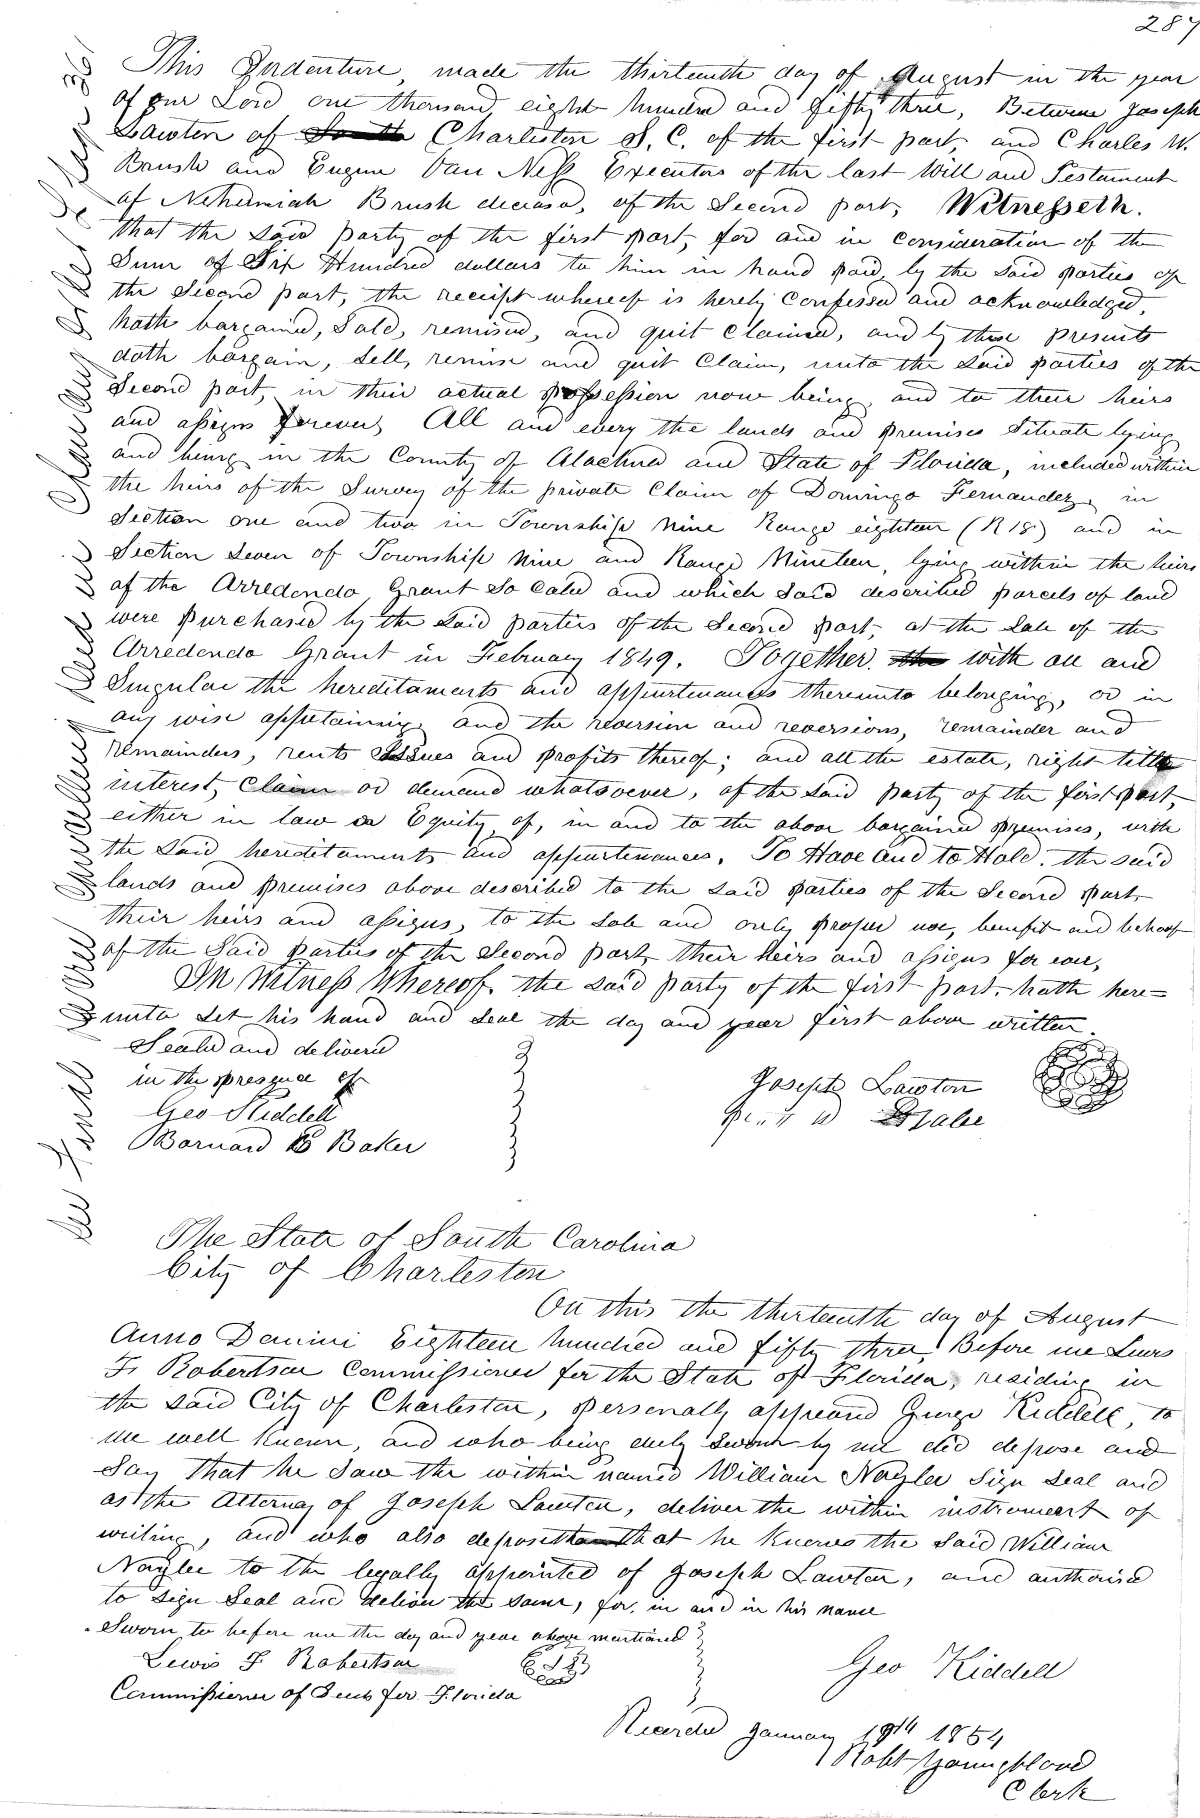 287
This Indenture, made the thirteenth day of August in the year
of our Lord one thousand eight hundred and fifty three, Between Joseph
Lawton of South Charleston S. C. of the first part, and Charles W.
Brush and Eugene Van Ness Executors of the last Will and Testament
of Nehemiah Brush deceased, of the Second part, Witnesseth.
that the said party of the first part, for and in consideration of the
Sum of Six Hundred dollars to him in hand paid, by the said parties of
the Second part, the receipt whereof is hereby Confessed and acknowledged,
hath bargained, Sold, remised, and quit claimed, and by these presents
doth bargain, sell, remise and quit Claim, unto the said parties of the
Second part, in their actual possession now being, and to their heirs
and assigns forever, All and every the lands and premises Situate lying
and being in the County of Alachua and State of Florida, included within
the heirs of the Survey of the private Claim of Domingo Fernandez, in
Section one and two in Township nine Range eighteen (R 18) and in
Section Seven of Township nine and Range Nineteen, lying within the heirs
of the Arredondo Grant So Called and which said described parcels of land
were purchased by the said parties of the Second part, at the Sale of the
Arredondo Grant in February 1849. Together the with all and
Singular the hereditaments and appurtenances thereunto belonging, or in
any wise appertaining and the reversion and reversions, remainder and
remainders, rents Issues and profits thereof; and all the estate, right title
interest, Claim or demand whatsoever, of the said party of the first part,
either in law or Equity, of, in and to the above bargained premises, with
the said hereditaments and appurtenances. To Have and to Hold. the said
lands and premises above described to the said parties of the Second part,
their heirs and assigns, to the sole and only proper use, benefit and behoof
of the Said parties of the Second part, their heirs and assigns for ever,
In Witness Whereof. the said party of the first part, hath here=
unto set his hand and seal the day and year first above written.
Seald and delivered
in the presence of
Geo Kiddell
Barnard E Baker
Joseph Lawton
The State of South Carolina
City of Charleston
On this the thirteenth day of August
Anno Domini Eighteen hundred and fifty three, Before me Lewis
F Robertson Commissioner for the State of Florida, residing in
the said City of Charleston, personally appeared George Kiddell, to
me well Known, and who being duly sworn by me did depose and
Say that he saw the within named William Naylee sign seal and
as the Attorney of Joseph Lawton, deliver the within instrument of
writing, and who also deposeth that he knows the said William
Naylee to the legally appointed of Joseph Lawton, and authorised
to sign Seal and deliver the same, for, in and in his name
Sworn to before me the day and year above mentioned
Lewis F Robertson
Commissioner of Deeds for Florida
Geo Kiddell
Recorded January 19th 1854
Robt Youngblood
Clerk